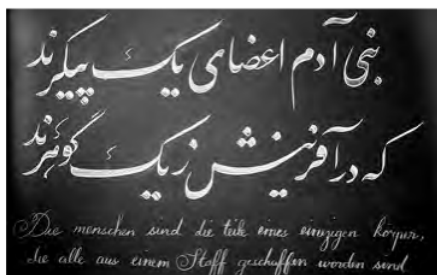 بنی آدم اعضای یک پیکرند
که در آفرینش ز یک گوهرند
Die menschen sind die teile eines einzigen körper,
die alle aus einem Staff geschaffen worden sind